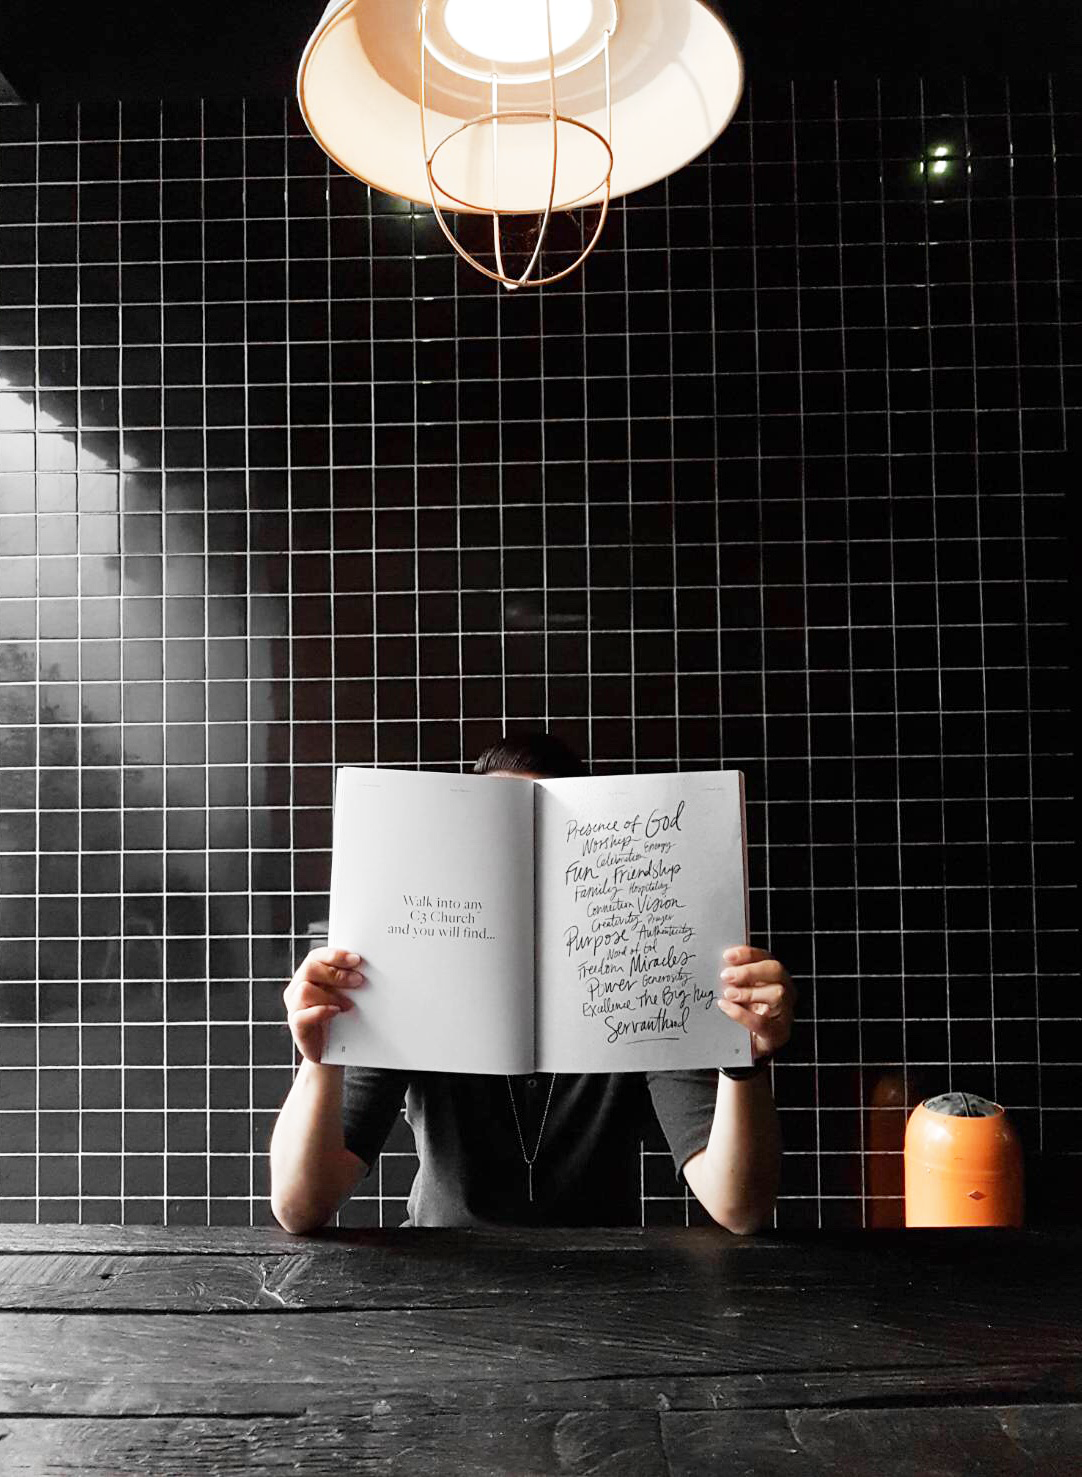 Walk into any
C3 Church
and you will find...
Presence of God
Worship
Celebration Energy
Fun Friendship
Family Hospitality
Connection Vision
Creativity Prayer
Purpose Authenticity
Word of God
Freedom Miracles
Power Generosity
Excellence The Big hug
Servanthood